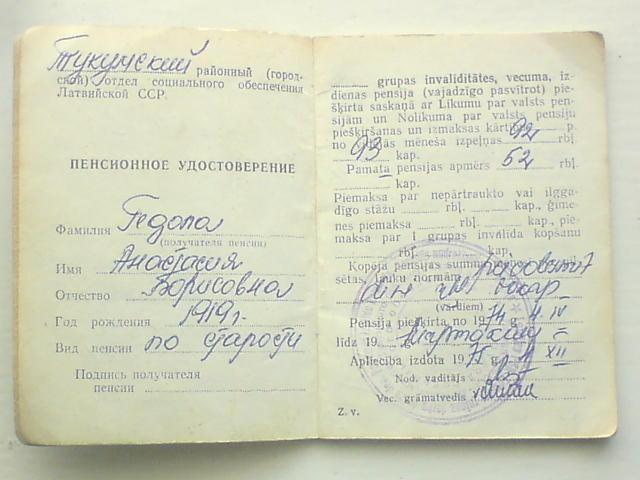 Тукумский районный (город-
ской) отдел социального обеспечения
Латвийской ССР.
ПЕНСИОННОЕ УДОСТОВЕРЕНИЕ
Фамилия
(получателя пенсии)
Имя Анастасия
Отчество Борисовна
Год рождения 1919 г.
Вид пенсии по старости
Подпись получателя
пенсии
grupas invaliditātes, vecuma, iz-
dienas pensija (vajadzīgo pasvītrot) pie-
šķirta saskaņā ar Likumu par valsts pen-
sijām un Nolikuma par valsts pensiju
piešķiršanas un izmaksas kārtību p.
no mēneša izpeļņas rbļ.
93 kap.
Pamata pensijas apmērs 52 rbļ.
kap.
Piemaksa par nepārtraukto vai ilgga-
dīgo stāžu rbļ. kap., ģime-
nes piemaksa rbļ. kap., pie-
maksa par I grupas invalīda kopšanu
rbļ. kap.
Kopēja pensijas summa
sētas, lauku normām
(vārdiem)
Pensija piešķirta no 1974 g. 4. IV
līdz 19
Apliecība izdota 197 g. XII
Nod. vadītājs
Vec. grāmatvedis
Z. v.